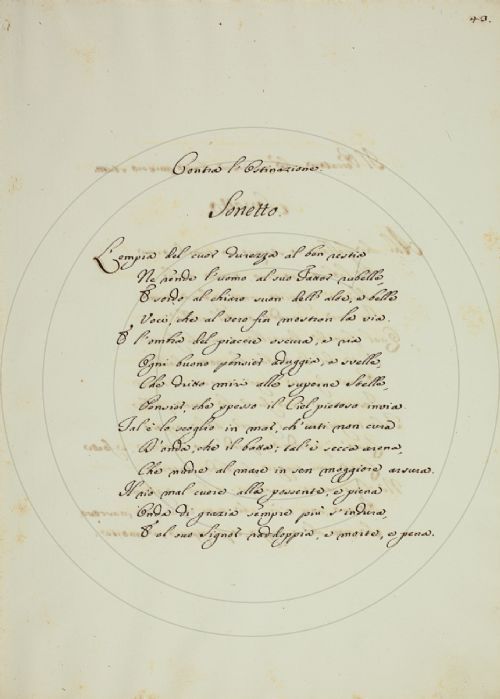 43.
Contra l'Ostinazione.
Sonetto.
L'empia del cuor durezza al ben restia
Ne rende l'uomo al suo Fattor rubelle
E sordo al chiaro suon dell'alte, e belle
Voci, che al vero fin mostran la via.
E l'ombra del piacere oscura, e ria
Ogni buono pensier aduggia, e svelle,
Che dritto miri alle superne Stelle,
Pensier, che spesso il Ciel pietoso invia.
Tal'è lo scoglio in mar, ch'urti non cura
D'onda, che il batta; tal'è secca arena,
Che nudre al mare in sen maggiore arsura.
Il rio mal cuore alla possente, e piena
Onda di grazia sempre più s'indura,
E al suo Signor raddoppia, e morte, e pena.